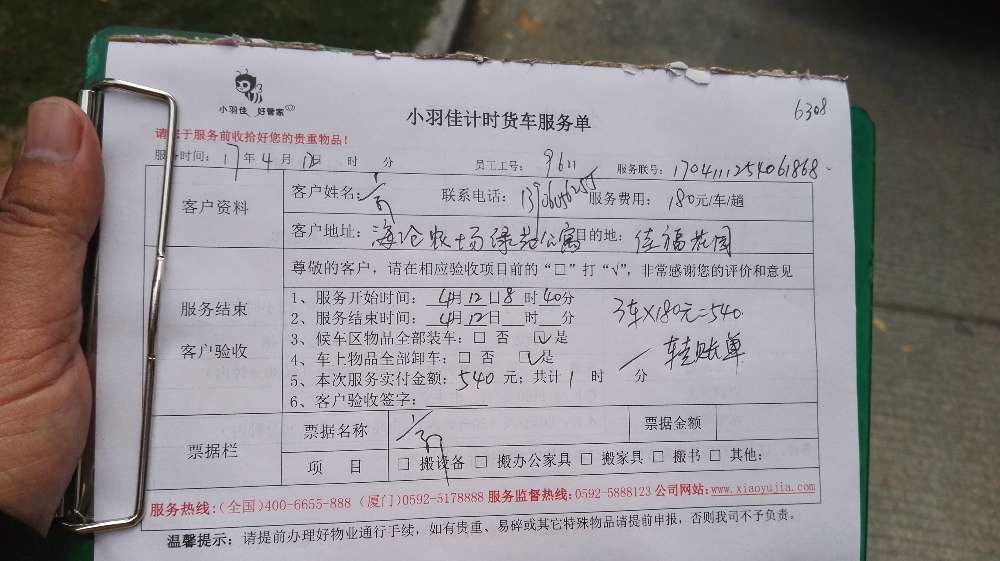 小羽佳 好管家
小羽佳计时货车服务单
6308
请您于服务前收拾好您的贵重物品!
服务时间: 17年4月12日 时 分 员工工号: 9611 服务联号:
客户资料
客户姓名: 联系电话: 服务费用: 180元/车/趟
客户地址: 海沧农场绿苑公寓 目的地: 佳福花园
尊敬的客户,请在相应验收项目前的“□”打“√”,非常感谢您的评价和意见
服务结束
客户验收
1、服务开始时间: 4月12日8时40分
2、服务结束时间: 4月12日 时 分
3、候车区物品全部装车: □ 否 ☑是
4、车上物品全部卸车: □ 否 ☑是
5、本次服务实付金额: 540 元; 共计1 时 分
6、客户验收签字:
3车×180元=540
转账单
票据栏
票据名称
票据金额
项 目
□ 搬设备 □ 搬办公家具 □ 搬家具 □ 搬书 □ 其他:
服务热线:(全国)400-6655-888 (厦门)0592-5178888 服务监督热线:0592-5888123 公司网站:www.xiaoyujia.com
温馨提示: 请提前办理好物业通行手续,如有贵重、易碎或其它特殊物品请提前申报,否则我司不予负责。